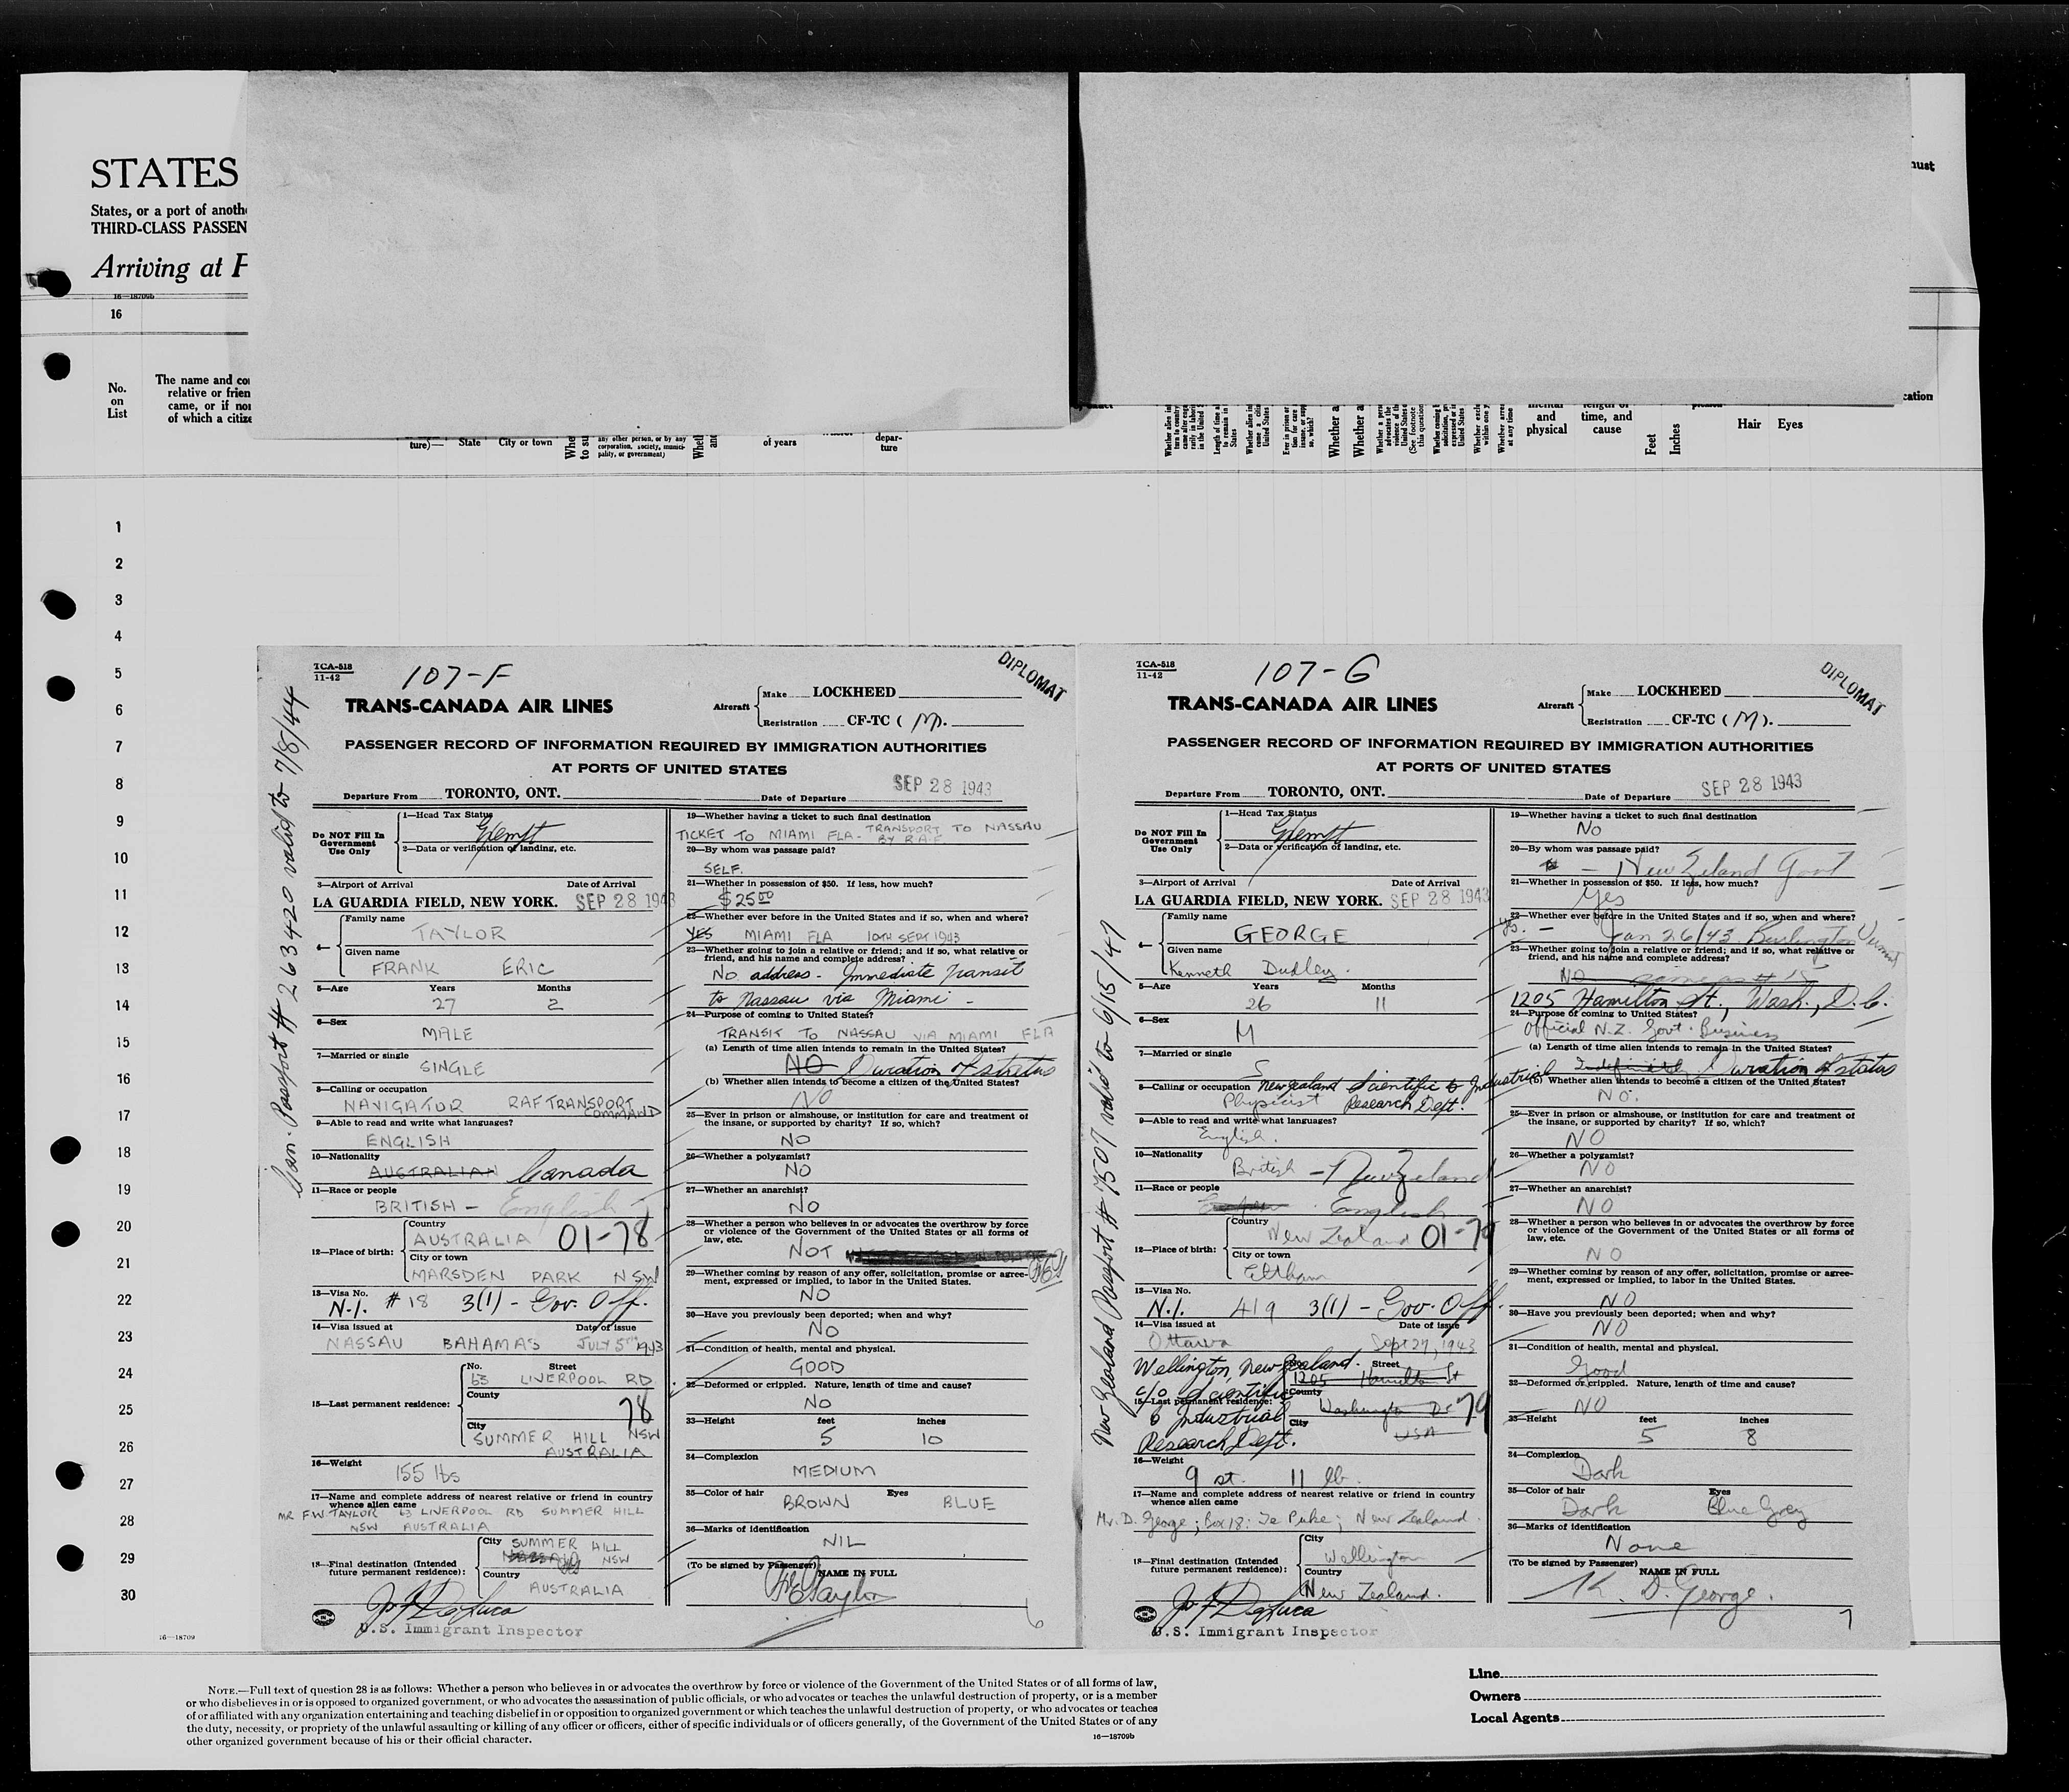 STATES
States, or a port of anoth
THIRD-CLASS PASSEN
Arriving at
16—18709b
16
No.
on
List
The name and co
relative or frien
came, or if no
of which a citize
ture)—
State
City or town
any other person, or by any
corporation, society, munici-
pality, or government)
of years
depar-
ture
and
physical
time, and
cause
Feet
Inches
Hair
Eyes
1
2
3
4
5
6
7
8
9
10
11
12
13
14
15
16
17
18
19
20
21
22
23
24
25
26
27
28
29
30
16—18709
Can. Passport # 263420 valid to 7/8/44
TCA-518
11-42
107-F
DIPLOMAT
TRANS-CANADA AIR LINES
Aircraft
Make LOCKHEED
Registration CF-TC (M).
PASSENGER RECORD OF INFORMATION REQUIRED BY IMMIGRATION AUTHORITIES
AT PORTS OF UNITED STATES
Departure From TORONTO, ONT.
Date of Departure SEP 28 1943
Do NOT Fill In
Government
Use Only
1—Head Tax Status
Exempt
2—Data or verification of landing, etc.
3—Airport of Arrival Date of Arrival
LA GUARDIA FIELD, NEW YORK. SEP 28 1943
4—
Family name
TAYLOR
Given name
FRANK ERIC
5—Age Years Months
27 2
6—Sex
MALE
7—Married or single
SINGLE
8—Calling or occupation
NAVIGATOR RAF TRANSPORT
COMMAND
9—Able to read and write what languages?
ENGLISH
10—Nationality
AUSTRALIAN Canada
11—Race or people
BRITISH – English
12—Place of birth:
Country
AUSTRALIA 01-78
City or town
MARSDEN PARK NSW
13—Visa No.
N.I. # 18 3(1) - Gov. Off.
14—Visa issued at Date of issue
NASSAU BAHAMAS JULY 5TH 1943
15—Last permanent residence:
No. Street
63 LIVERPOOL RD
County
78
City
SUMMER HILL NSW
AUSTRALIA
16—Weight
155 lbs
17—Name and complete address of nearest relative or friend in country
whence alien came
MR F.W. TAYLOR 63 LIVERPOOL RD SUMMER HILL
NSW AUSTRALIA
18—Final destination (Intended
future permanent residence):
City SUMMER HILL
NSW
Country
AUSTRALIA
U.S. Immigrant Inspector
19—Whether having a ticket to such final destination
TICKET TO MIAMI FLA - TRANSPORT TO NASSAU
BY R.A.F.
20—By whom was passage paid?
SELF.
21—Whether in possession of $50. If less, how much?
$25.00
22—Whether ever before in the United States and if so, when and where?
YES MIAMI FLA 10TH SEPT 1943
23—Whether going to join a relative or friend; and if so, what relative or
friend, and his name and complete address?
No address - Immediate Transit
to Nassau via Miami -
24—Purpose of coming to United States?
TRANSIT TO NASSAU VIA MIAMI FLA
(a) Length of time alien intends to remain in the United States?
NO Duration of status
(b) Whether alien intends to become a citizen of the United States?
NO
25—Ever in prison or almshouse, or institution for care and treatment of
the insane, or supported by charity? If so, which?
NO
26—Whether a polygamist?
NO
27—Whether an anarchist?
NO
28—Whether a person who believes in or advocates the overthrow by force
or violence of the Government of the United States or all forms of
law, etc.
NOT
29—Whether coming by reason of any offer, solicitation, promise or agree-
ment, expressed or implied, to labor in the United States.
NO
30—Have you previously been deported; when and why?
NO
31—Condition of health, mental and physical.
GOOD
32—Deformed or crippled. Nature, length of time and cause?
NO
33—Height feet inches
5 10
34—Complexion
MEDIUM
35—Color of hair Eyes
BROWN BLUE
36—Marks of identification
NIL
(To be signed by Passenger) NAME IN FULL
F E Taylor
6
New Zealand Passport # 7507 valid to 6/15/47
TCA-518
11-42
107-G
DIPLOMAT
TRANS-CANADA AIR LINES
Aircraft
Make LOCKHEED
Registration CF-TC (M).
PASSENGER RECORD OF INFORMATION REQUIRED BY IMMIGRATION AUTHORITIES
AT PORTS OF UNITED STATES
Departure From TORONTO, ONT.
Date of Departure SEP 28 1943
Do NOT Fill In
Government
Use Only
1—Head Tax Status
Exempt
2—Data or verification of landing, etc.
3—Airport of Arrival Date of Arrival
LA GUARDIA FIELD, NEW YORK. SEP 28 1943
4—
Family name
GEORGE
Given name
Kenneth Dudley.
5—Age Years Months
26 11
6—Sex
M
7—Married or single
S
8—Calling or occupation New Zealand Scientific & Industrial
Physicist Research Dept.
9—Able to read and write what languages?
English.
10—Nationality
British - New Zealand
11—Race or people
English
12—Place of birth:
Country
New Zealand 01-79
City or town
Eltham
13—Visa No.
N.I. 419 3(1) - Gov. Off.
14—Visa issued at Date of issue
Ottawa Sept 27, 1943
Wellington, New Zealand. Street
1205 Hamilton St
c/o Scientific County
15—Last permanent residence: Washington DC 79
& Industrial City
USA
Research Dept.
16—Weight
9 st. 11 lb.
17—Name and complete address of nearest relative or friend in country
whence alien came
Mr. D. George; Box 18; Te Puke; New Zealand.
18—Final destination (Intended
future permanent residence):
City
Wellington
Country
New Zealand.
U.S. Immigrant Inspector
19—Whether having a ticket to such final destination
No
20—By whom was passage paid?
— New Zeland Govt
21—Whether in possession of $50. If less, how much?
Yes
22—Whether ever before in the United States and if so, when and where?
Yes. - Jan 26/43 Burlington Vermont
23—Whether going to join a relative or friend; and if so, what relative or
friend, and his name and complete address?
NO same as # 15
1205 Hamilton St., Wash., D.C.
24—Purpose of coming to United States?
Official N.Z. Govt. Business
(a) Length of time alien intends to remain in the United States?
Indefinitely Duration of status
(b) Whether alien intends to become a citizen of the United States?
NO.
25—Ever in prison or almshouse, or institution for care and treatment of
the insane, or supported by charity? If so, which?
NO
26—Whether a polygamist?
NO
27—Whether an anarchist?
NO
28—Whether a person who believes in or advocates the overthrow by force
or violence of the Government of the United States or all forms of
law, etc.
NO
29—Whether coming by reason of any offer, solicitation, promise or agree-
ment, expressed or implied, to labor in the United States.
NO
30—Have you previously been deported; when and why?
NO
31—Condition of health, mental and physical.
Good
32—Deformed or crippled. Nature, length of time and cause?
NO
33—Height feet inches
5 8
34—Complexion
Dark
35—Color of hair Eyes
Dark Blue Grey
36—Marks of identification
None
(To be signed by Passenger) NAME IN FULL
K. D. George.
7
NOTE.—Full text of question 28 is as follows: Whether a person who believes in or advocates the overthrow by force or violence of the Government of the United States or of all forms of law,
or who disbelieves in or is opposed to organized government, or who advocates the assassination of public officials, or who advocates or teaches the unlawful destruction of property, or is a member
of or affiliated with any organization entertaining and teaching disbelief in or opposition to organized government or which teaches the unlawful destruction of property, or who advocates or teaches
the duty, necessity, or propriety of the unlawful assaulting or killing of any officer or officers, either of specific individuals or of officers generally, of the Government of the United States or of any
other organized government because of his or their official character.
16—18709b
Line
Owners
Local Agents